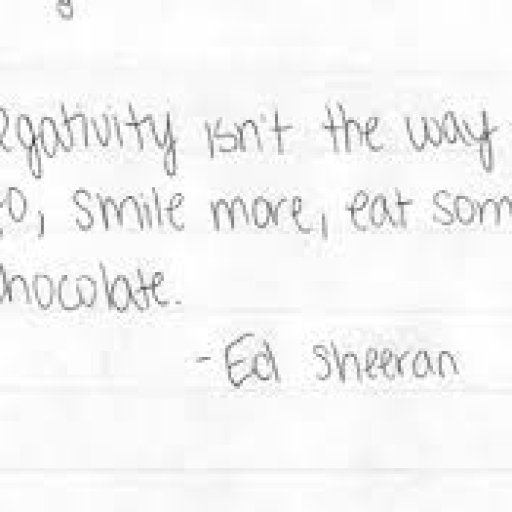 egativity isn't the way
o, smile more, eat som
hocolate.
- Ed sheeran